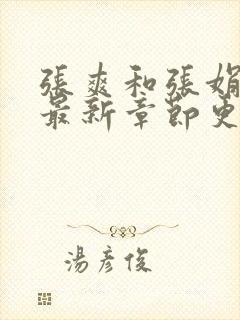 張爽和張娟
最新章節更
湯彥俊